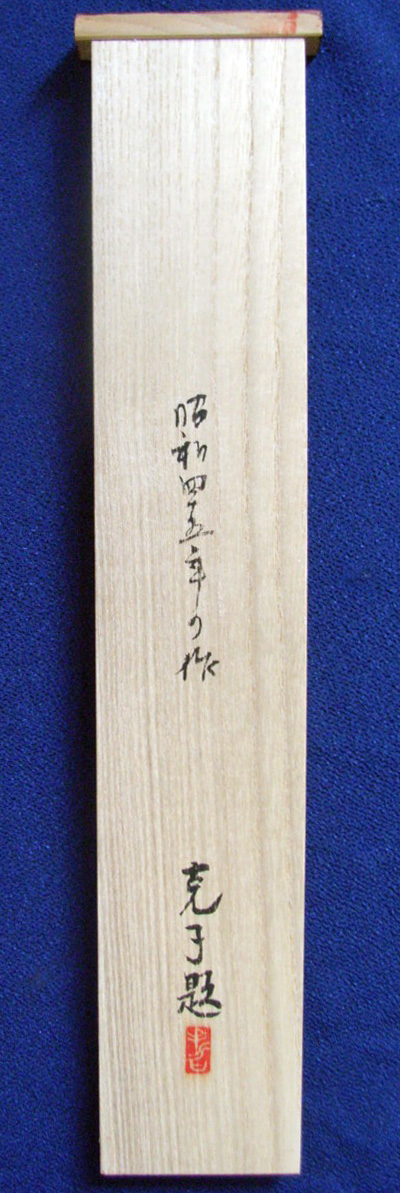 昭和四五年の作
克子題